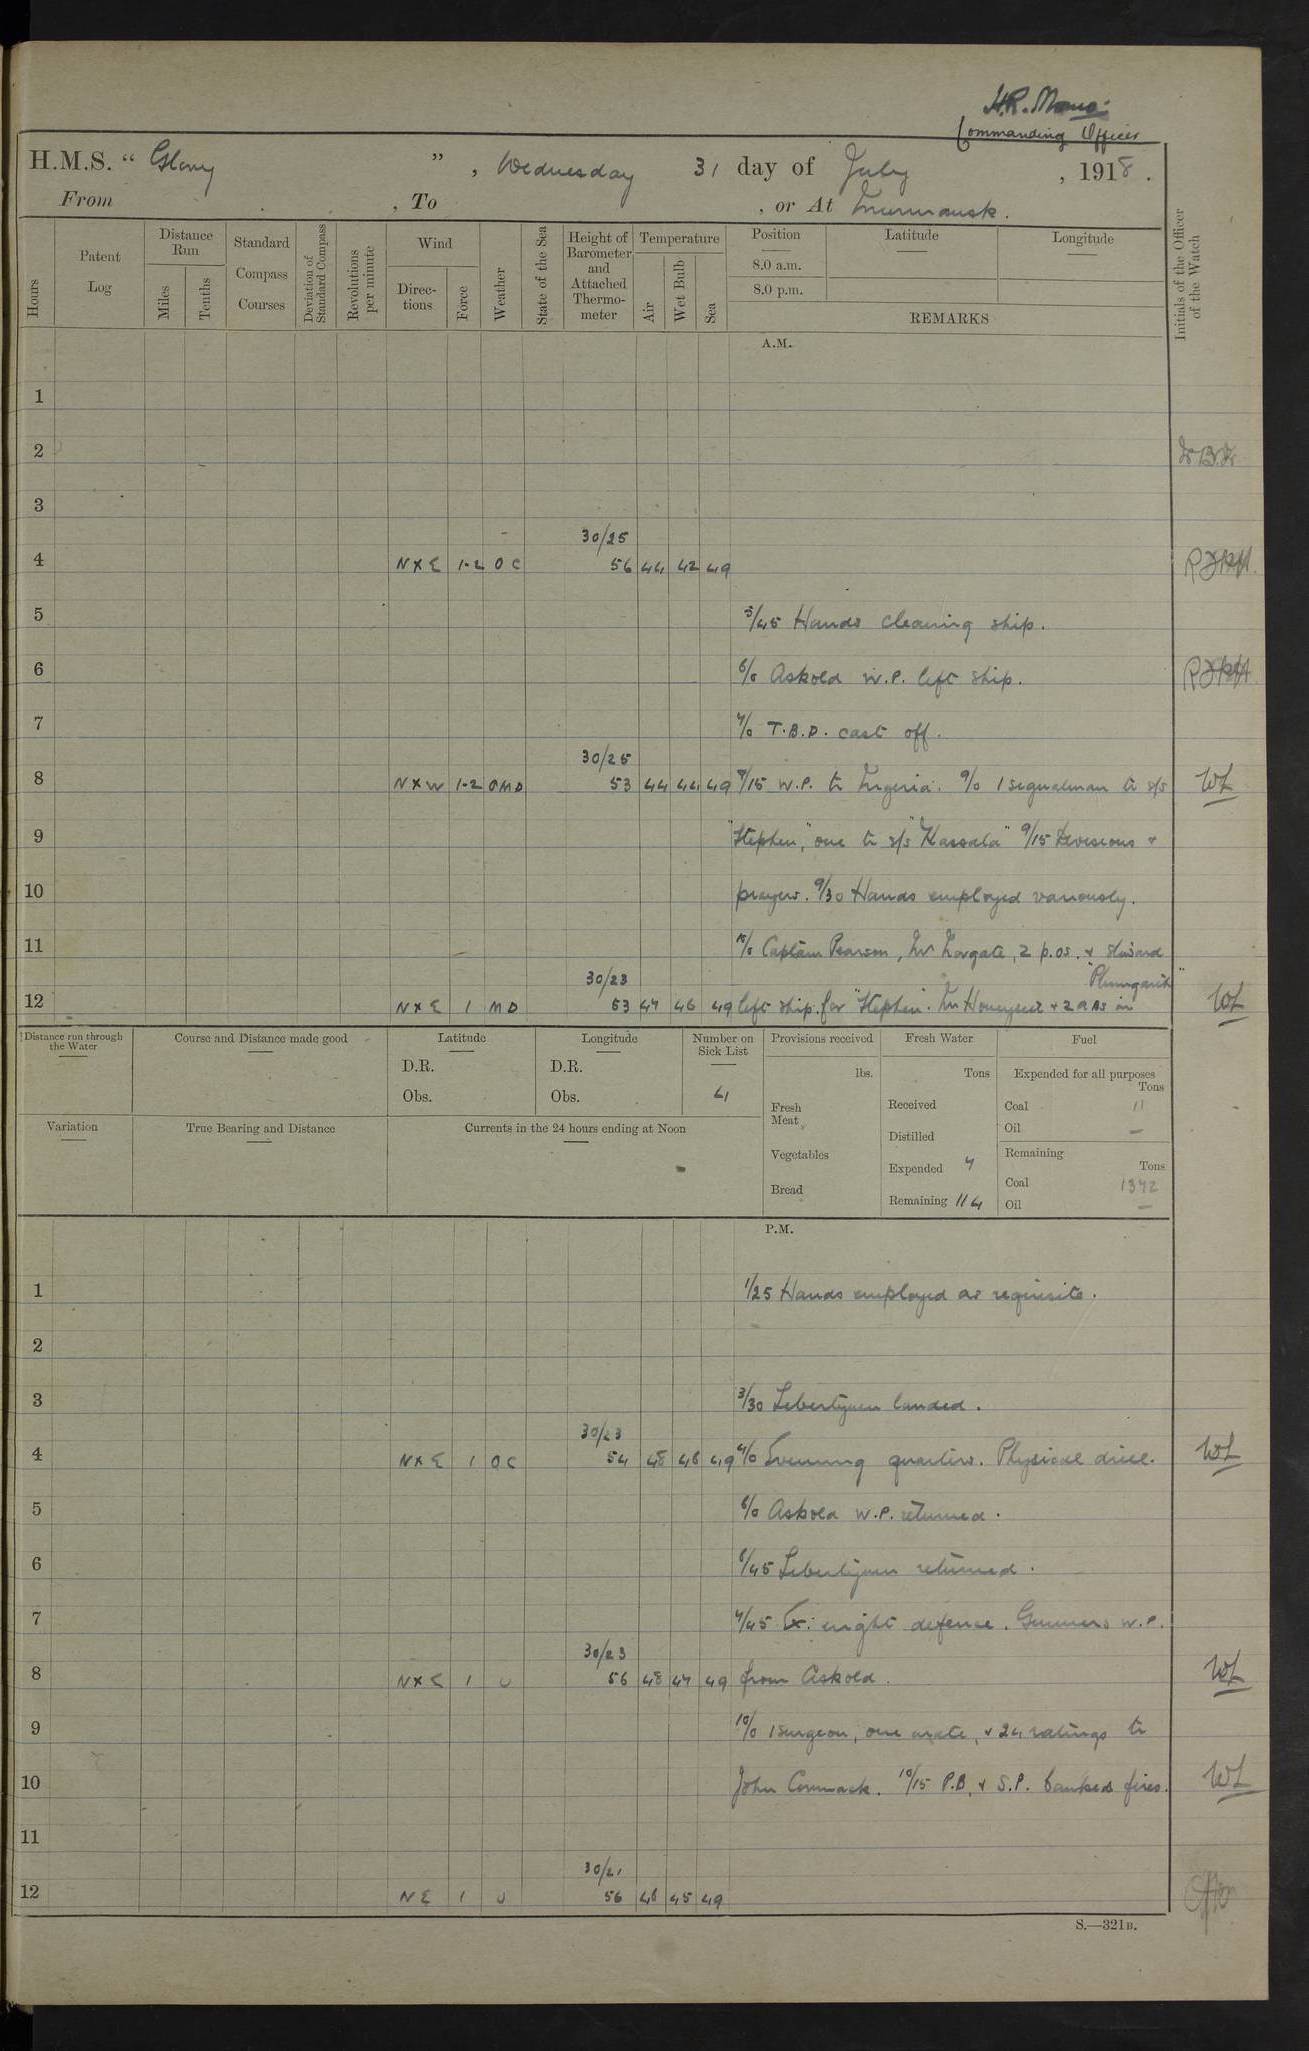 H.R. M
Commanding Officer
H.M.S. "Glory", Wednesday 31 day of July, 1918.
From , To , or At Murmansk.
Hours
Patent Log
Distance Run
Miles
Tenths
Standard Compass Courses
Deviation of Standard Compass
Revolutions per minute
Wind
Directions
Force
Weather
State of the Sea
Height of Barometer and Attached Thermometer
Temperature
Air
Wet Bulb
Sea
Position
8.0 a.m.
8.0 p.m.
Latitude
Longitude
REMARKS
Initials of the Officer of the Watch
A.M.
1
2
3
30/25
4 N x E 1-2 O C 56 44 42 49
5 5/45 Hands cleaning ship.
6 6/0 Askold W.P. left ship.
7 7/0 T.B.D. cast off.
30/25
8 N x W 1-2 OMD 53 44 44 49 8/15 W.P. to Nigeria. 9/0 1 signalman to s/s WL
9 "Stephen," one to s/s "Kassala" 9/15 Divisions +
10 prayers. 9/30 Hands employed variously.
11 10/0 Captain Pearson, Mr Margate, 2 p.os. + steward
30/23 "Plumgarth"
12 N x E 1 MD 53 47 46 49 left ship for "Stephen". Mr Honeysett + 2 ABs in WL
Distance run through the Water
Course and Distance made good
Latitude
D.R.
Obs.
Longitude
D.R.
Obs.
Number on Sick List
4
Provisions received
lbs.
Fresh Meat
Vegetables
Bread
Fresh Water
Tons
Received
Distilled
Expended 7
Remaining 114
Fuel
Expended for all purposes
Tons
Coal 11
Oil —
Remaining
Tons
Coal 1372
Oil —
Variation
True Bearing and Distance
Currents in the 24 hours ending at Noon
P.M.
1 1/25 Hands employed as requisite.
2
3 3/30 Libertymen landed.
30/23
4 N x E 1 O C 54 48 46 49 4/0 Evening quarters. Physical drill. WL
5 6/0 Askold W.P. returned.
6 6/45 Libertymen returned.
7 7/45 Ex: night defence. Gunners W.P.
30/23
8 N x E 1 O 56 48 47 49 from Askold. WL
9 10/0 1 surgeon, one mate, + 24 ratings to
10 John Cormack. 10/15 P.B. + S.P. banked fires. WL
11
30/21
12 N E 1 O 56 46 45 49
S.—321B.